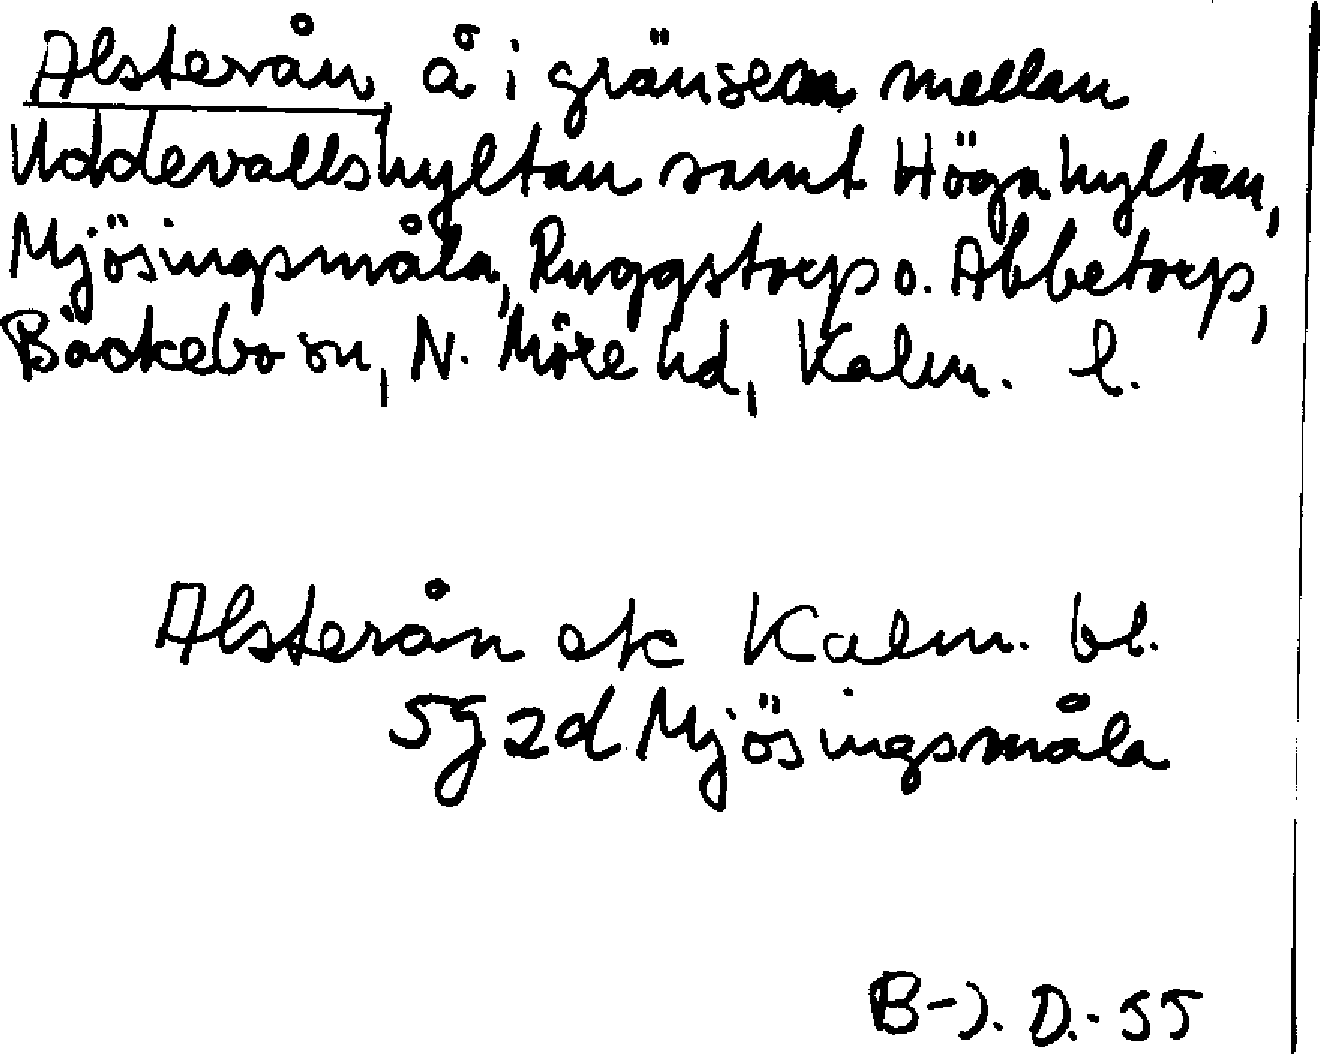 Alsterån å i gränsen mellan
Uddevallshyltan samt Högahyltan,
Mjösingsmåla, Ruggstorp o. Abbetorp,
Bäckebo sn, N. Möre hd, Kalm. l.
Alsterån ek Kalm. bl.
5g2d Mjösingsmåla
B-J. D.-55